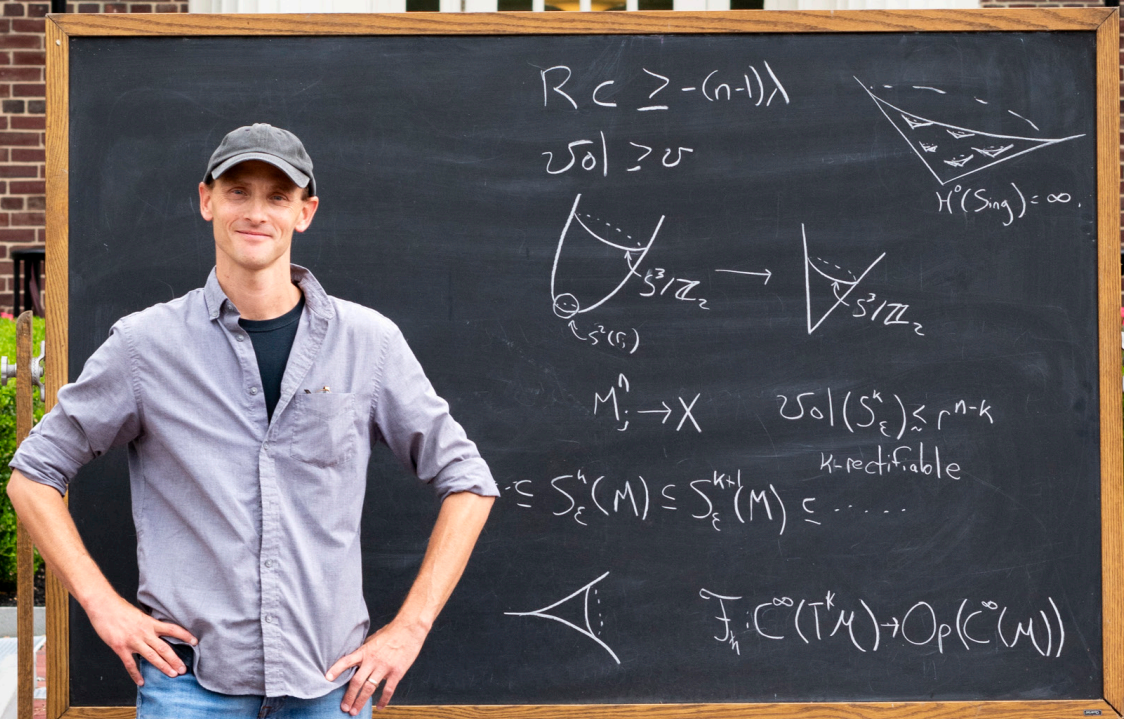 Rc ≥ -(n-1)λ
vol ≥ v
H⁰(Sing) = ∞.
S³/ℤ₂
S²(rⱼ)
S³/ℤ₂
Mⱼⁿ → X
Vol(S_ε^k) ≲ r^{n-k}
k-rectifiable
⊆ S_ε^k(M) ⊆ S_ε^{k+1}(M) ⊆ .....
ℱ_ℏ : C^∞(T^*M) → Op(C^∞(M))